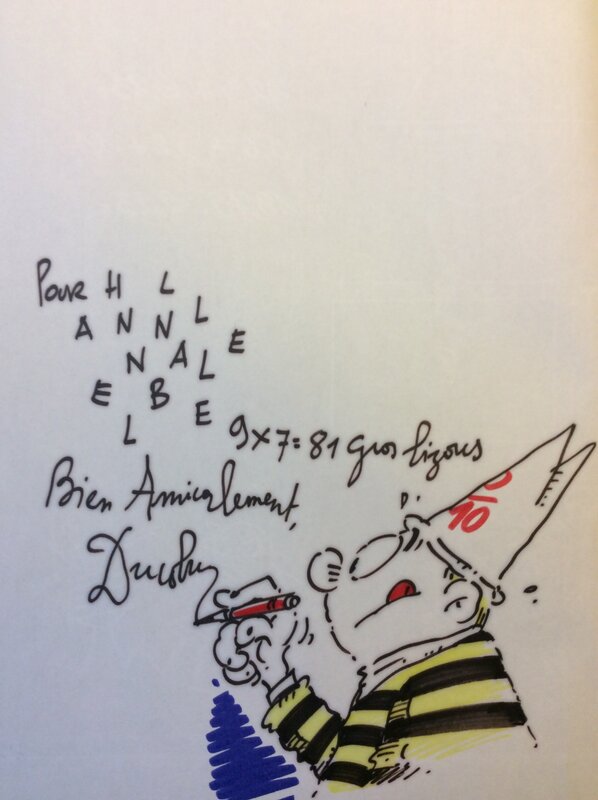 Pour H L
A N N L
N A L E
E B E
L
9x7=81 gros bizous
Bien Amicalement,
Ducobu
0/10